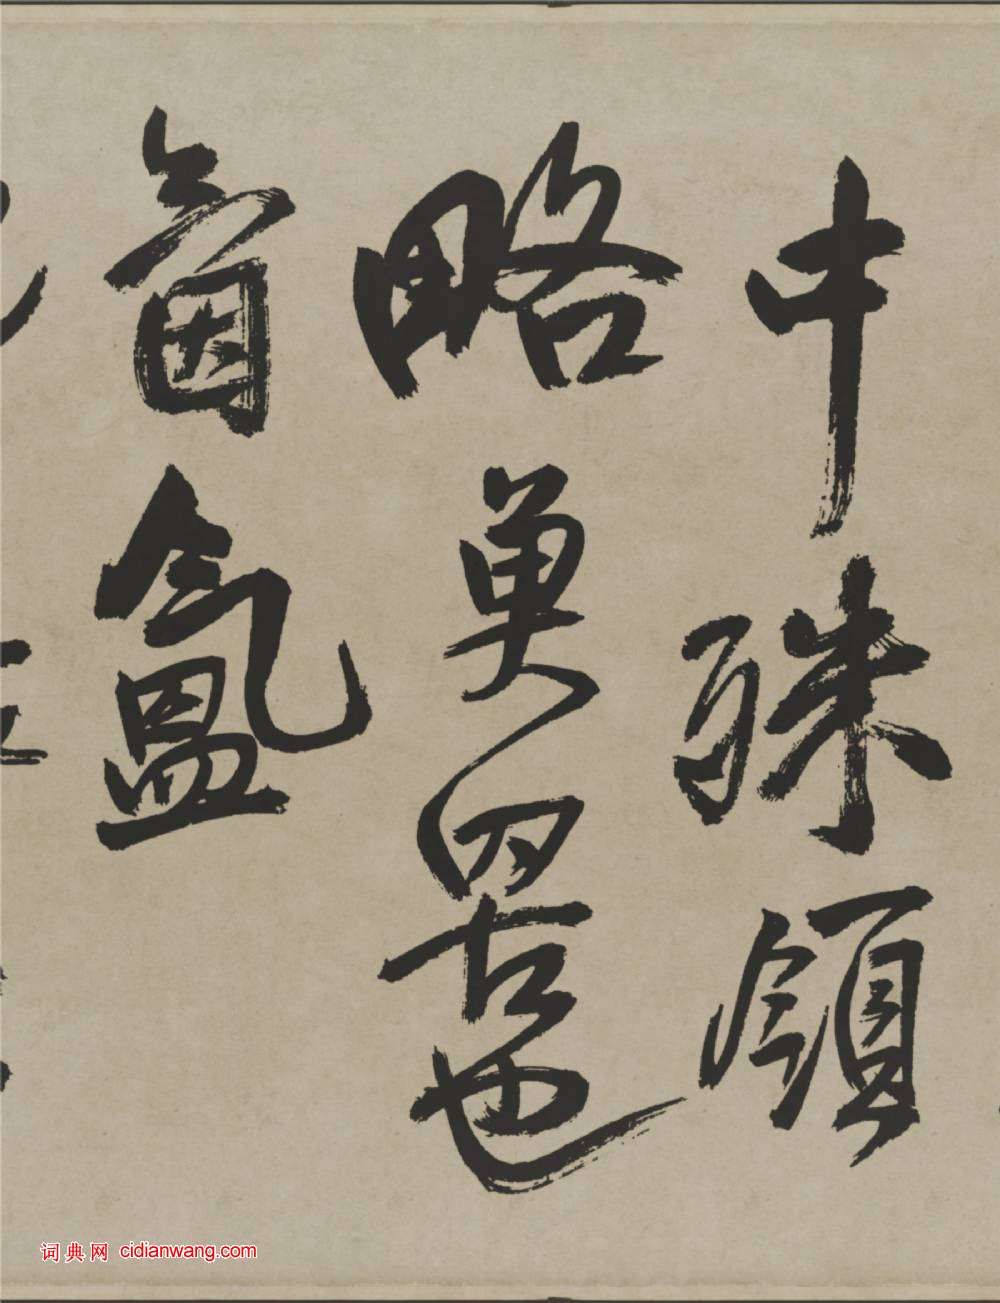 中殊領
略更罟也
氤氳
词典网 cidianwang.com